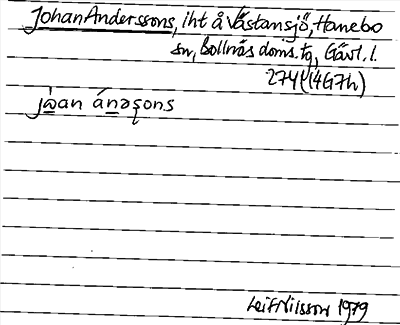 Johan Anderssons, iht å Västansjö, Hanebo
sn, Bollnäs doms. tg, Gävl. l.
274 (14G7h)
jàan ánəşons
Leif Nilsson 1979